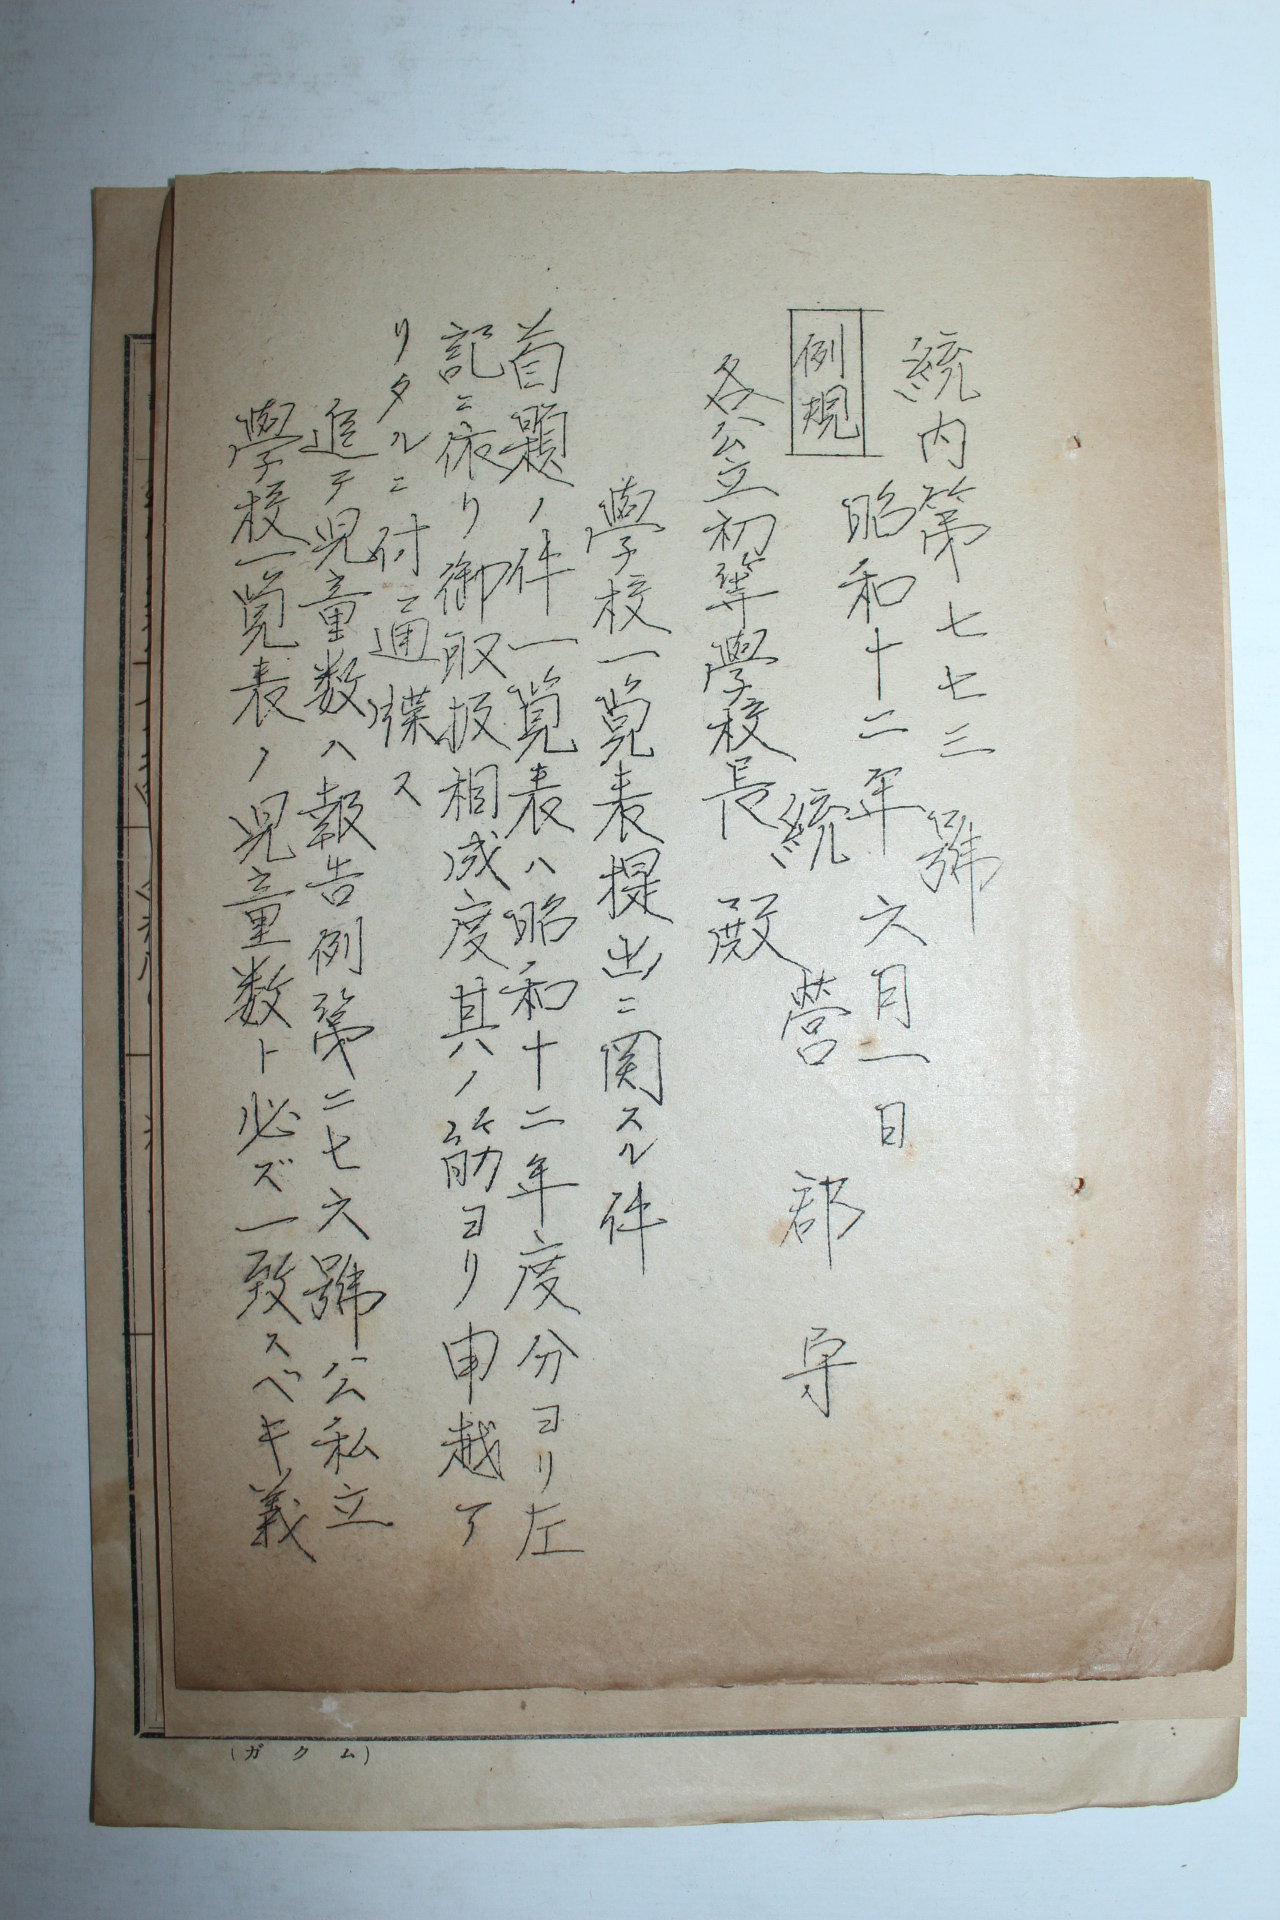 統内第七七三號
昭和十二年六月一日
例規
統營郡守
各公立初等學校長殿
學校一覧表提出ニ関スル件
首題ノ件一覧表ハ昭和十二年度分ヨリ左
記ニ依リ御取扱相成度其ノ筋ヨリ申越ア
リタルニ付通牒ス
追テ児童数ハ報告例第二七六號公私立
學校一覧表ノ児童数ト必ズ一致スベキ義
(ガクム)